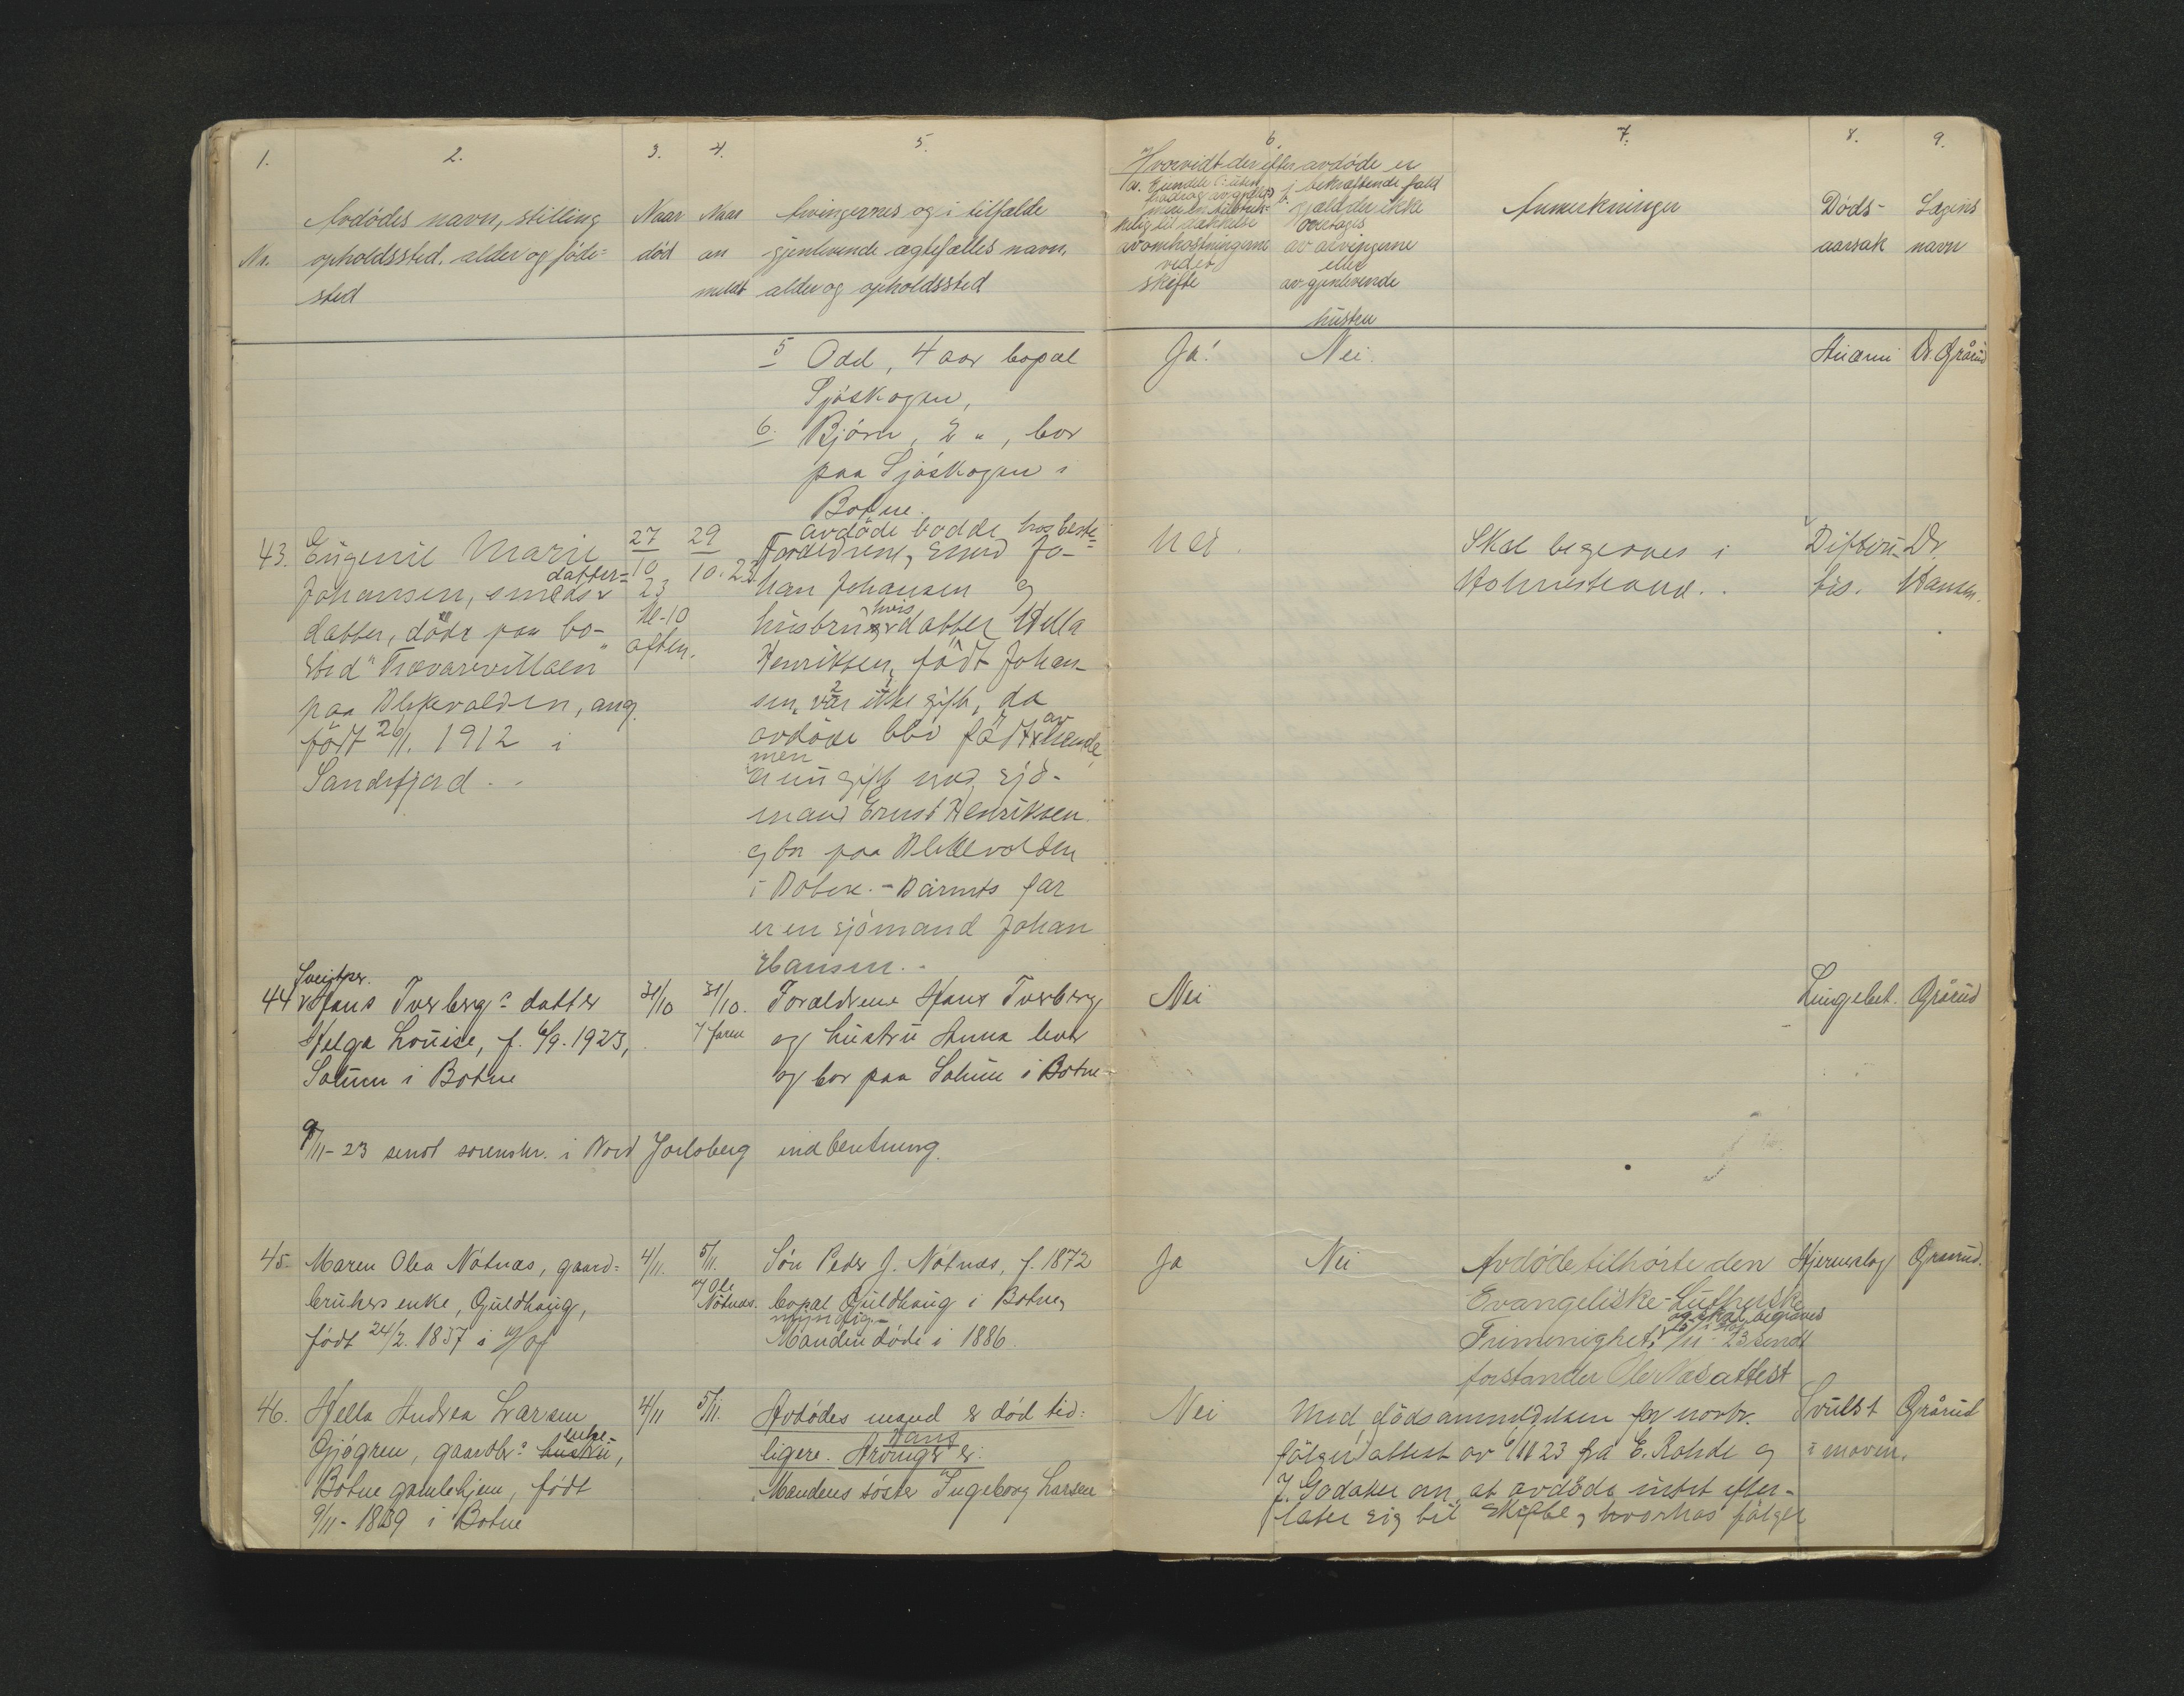 1.
2.
3.
4.
5.
6.
7.
8.
9.
Nr.
Avdödes navn, stilling
opholdssted, alder og föde=
sted
Naar
död
Naar
an
meldt
Arvingernes og i tilfælde
gjenlevende ægtefælles navn,
alder og opholdssted
Hvorvidt der efter avdöde er
a. Eiendele
av omkostningerne
ved et
skifte
b. i bekræftende fald
gjæld der ikke
overtages
av arvingerne
eller
av gjenlevende
hustru
Anmerkninger
Döds-
aarsak
Lægens
navn
5 Odd, 4 aar bopæl
Sjöskogen,
6. Björn, 2 ", bor
paa Sjöskogen i
Botne.
Ja!
Nei.
Anæmi
Dr Grårud
43.
Eugenie Marie
Johansen, smeds datter=
datter, döde paa bo-
sted "Trævarevillaen"
paa Blekevolden, ang.
född 26/1. 1912 i
Sandefjord.
27
10
23
kl-10
aften.
29
10.23.
avdöde bodde hos beste=
forældrene, smed Jo-
han Johansen og
hustru, hvis datter Hella
Henriksen, födt Johan-
sen, var ikke gift, da
avdöde blev födt av hende,
men
er nu gift med sjö-
mand Ernst Henriksen
og bor paa Blekevolden
i Botne. - Barnets far
er en sjömand Johan
Hansen.
Nei.
Skal begraves i
Holmestrand.
Difteri-
tis.
Dr.
Hansen.
44
Sveitser.
Hans Tverbergs datter
Helga Louise, f. 6/9. 1923,
Solum i Botne
31/10
31/10.
v/ faren
Forældrene Hans Tverberg
og hustru Anna lever
og bor paa Solum i Botne
Nei
Lungebet.
Grårud
9/11-23 sendt sorenskr. i Nord Jarlsberg indberetning.
45.
Maren Olea Nötnæs, gaard=
brukers enke, Guldhaug,
födt 24/2. 1837 i Hof
4/11.
5/11.
v/ Ole
Nötnæs.
Sön Peder J. Nötnæs, f. 1872
bopæl Guldhaug i Botne,
myndig.-
Manden döde i 1886.
Ja
Nei
Avdöde tilhörte den
Evangeliske-Lutherske
Frimenighet, og skal begraves
/11-23 sendt
forstander Ole Næs attest
Hjerneslag
Grårud.
46.
Hella Andrea Larsen
Gjögren, gaardbr.s hustru, enke-
Botne gamlehjem, födt
9/11-1839 i Botne
4/11
5/11.
Avdödes mand er död tid=
ligere. Hans Arvinger er:
Mandens söster Ingeborg Larsen
Nei
Med dödsanmeldelsen for
fölger attest av 6/11 23 fra E. Rohde og
J. Godaker om, at avdöde intet efter-
later sig til skifte, hvorhos fölger
Svulst
i maven.
Grårud